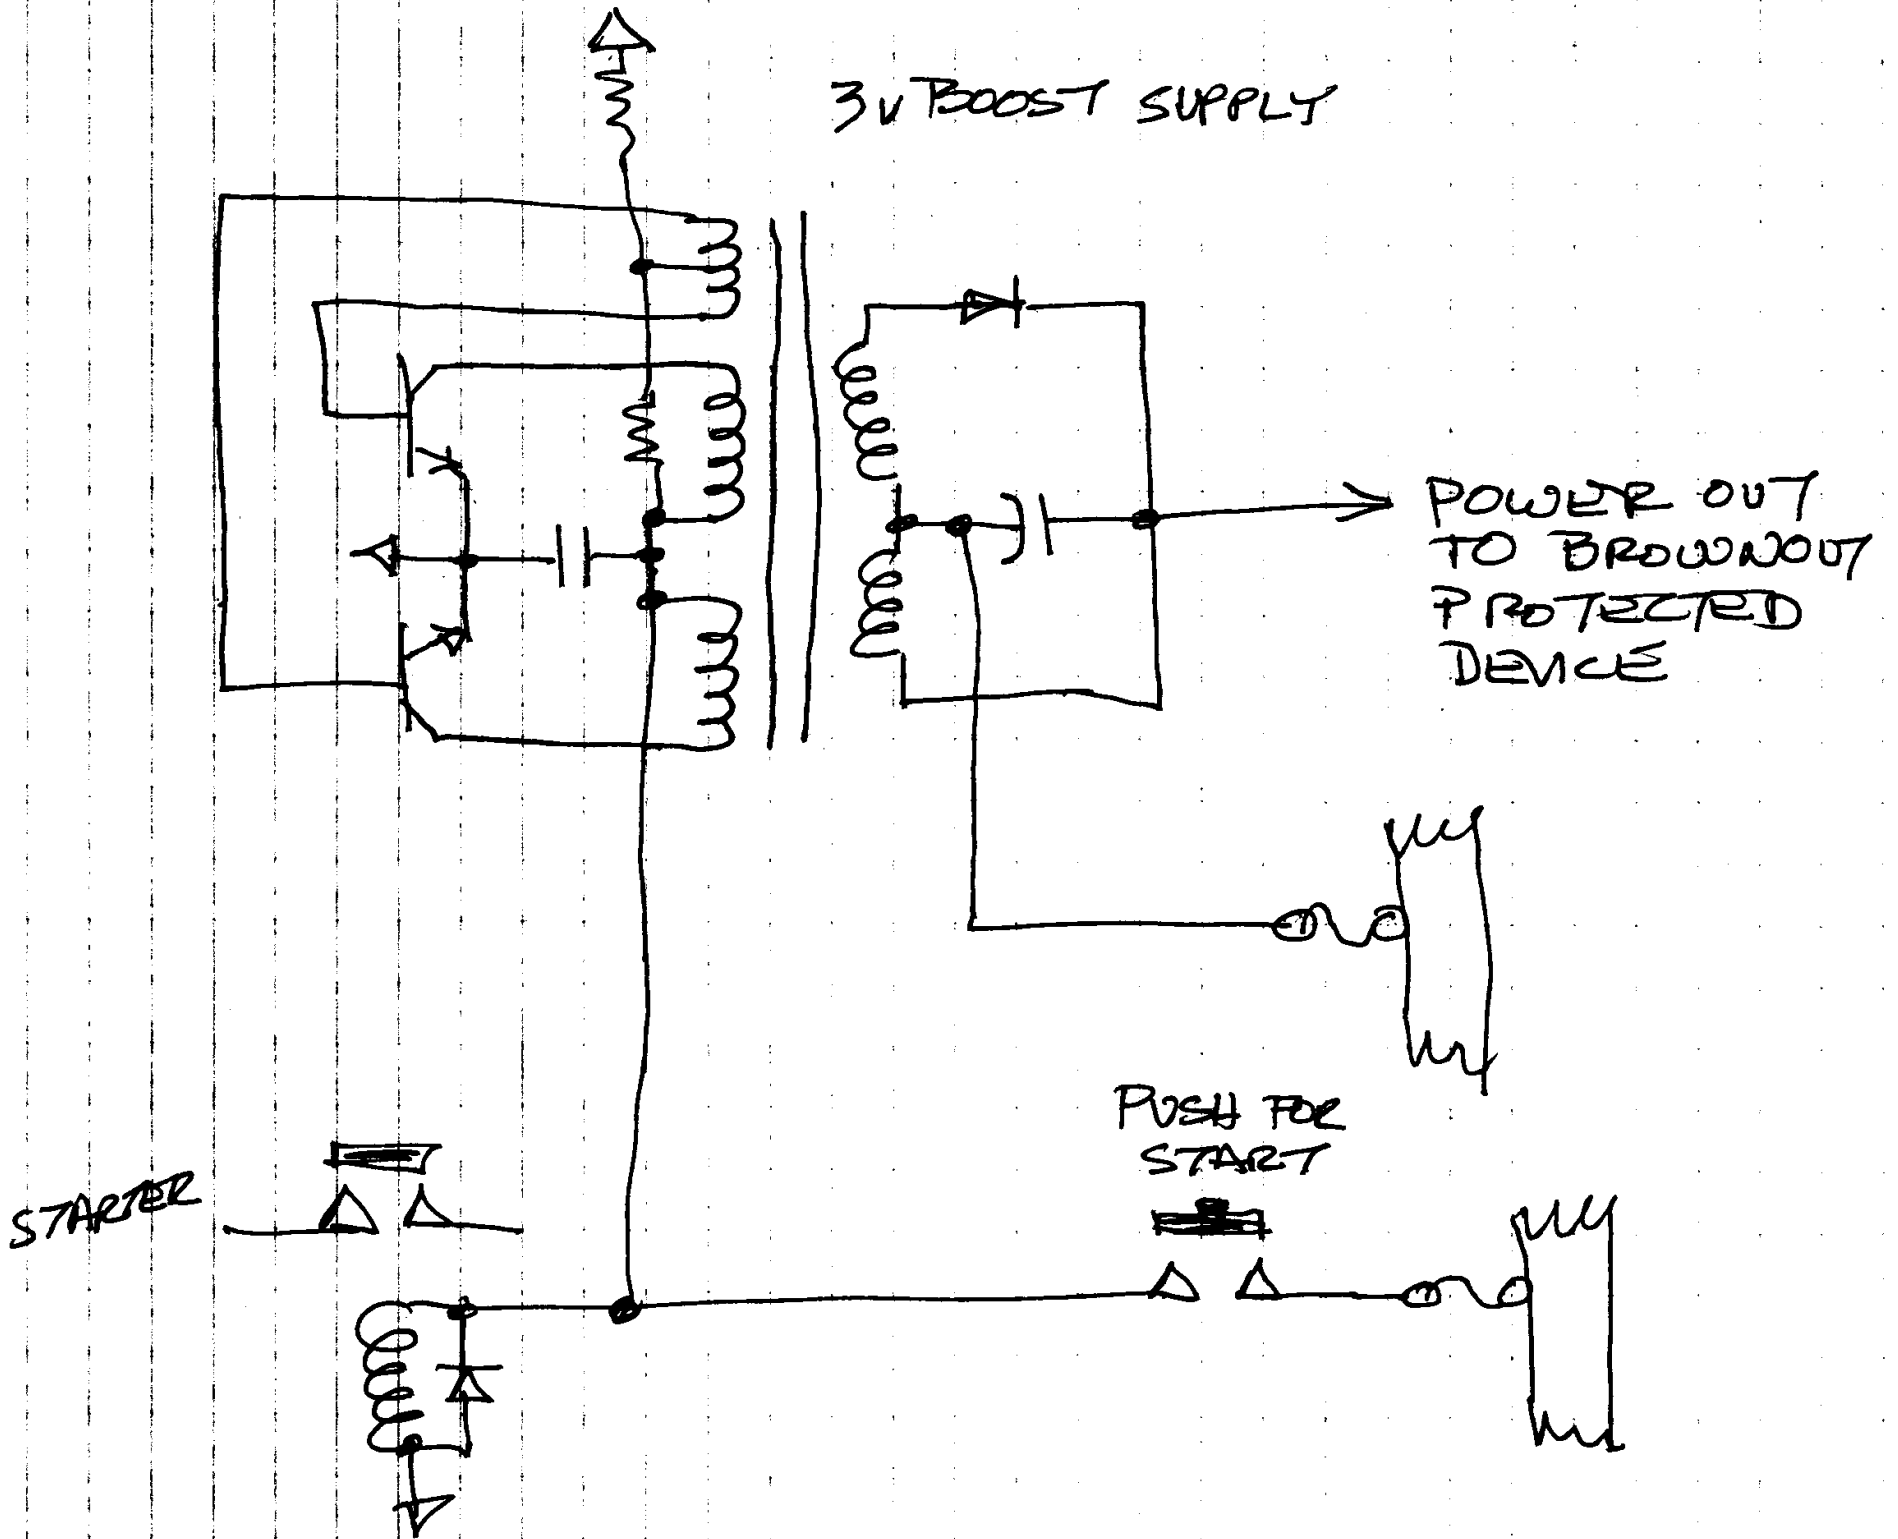 3V BOOST SUPPLY
POWER OUT
TO BROWNOUT
PROTECTED
DEVICE
PUSH FOR
START
STARTER